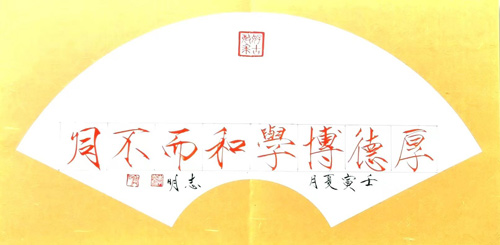 厚德博學和而不同
壬寅夏月 志明